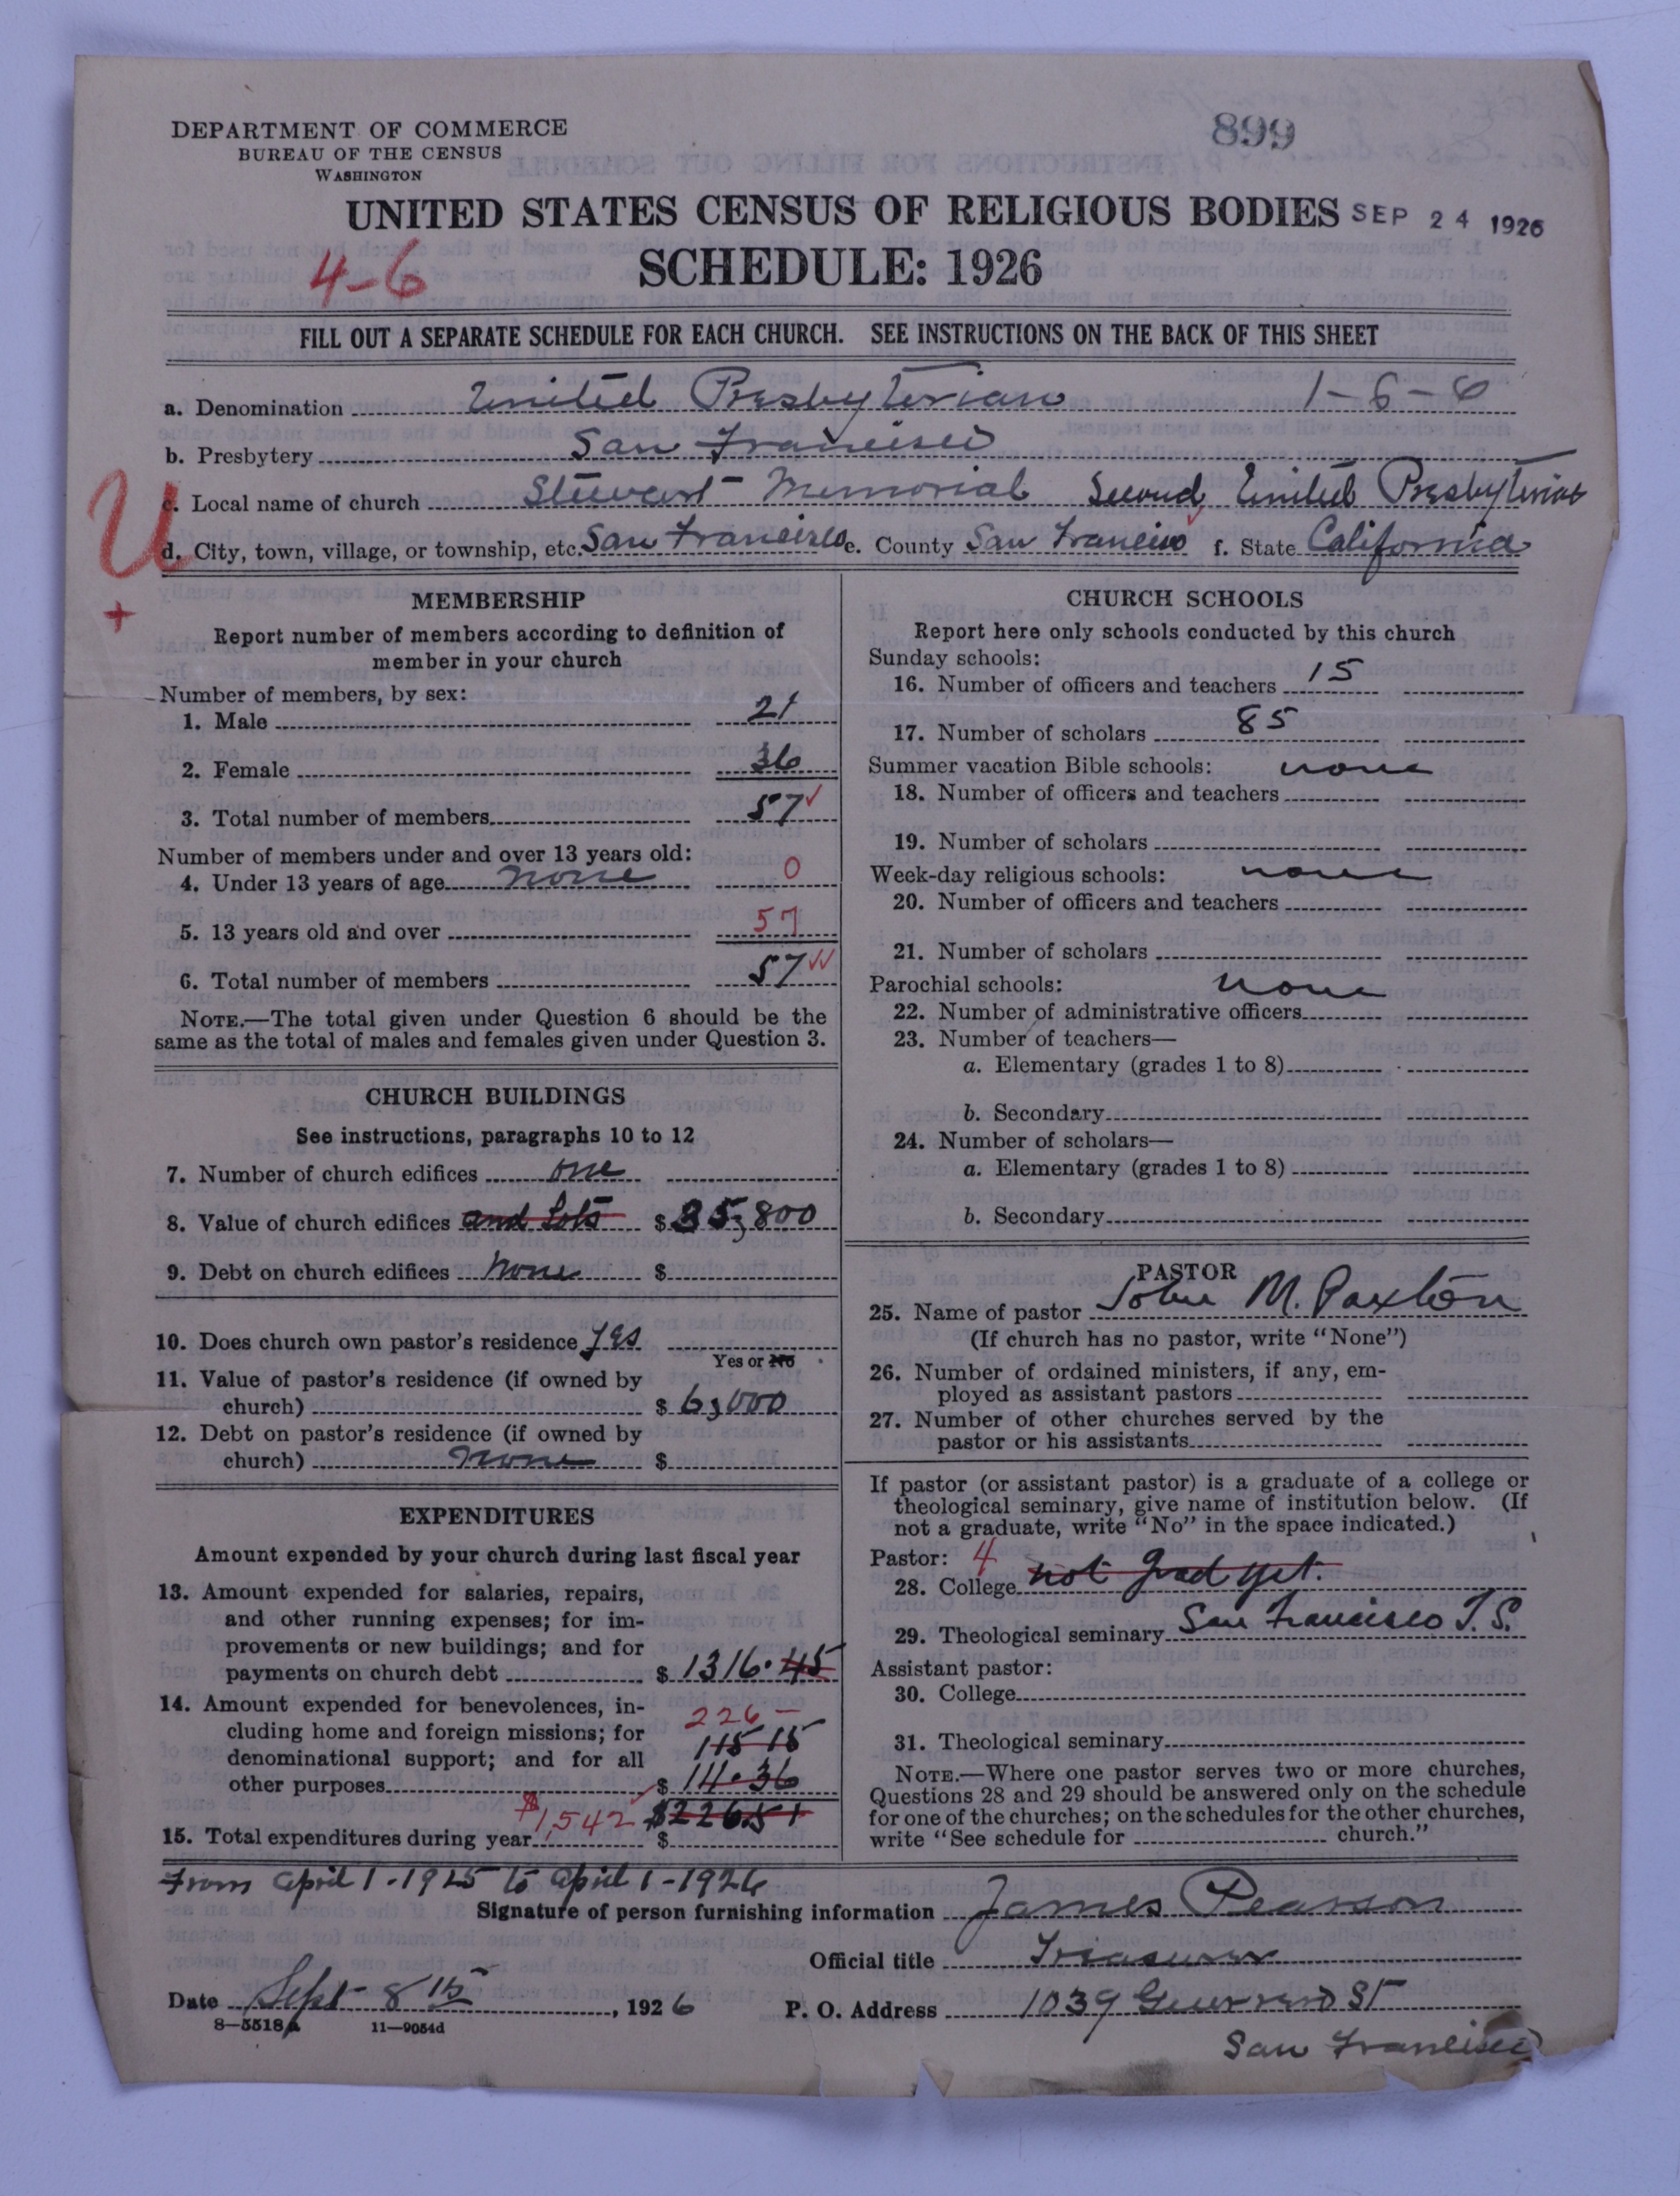 DEPARTMENT OF COMMERCE
BUREAU OF THE CENSUS
WASHINGTON
899
UNITED STATES CENSUS OF RELIGIOUS BODIES SEP 24 1926
4-6
SCHEDULE: 1926
FILL OUT A SEPARATE SCHEDULE FOR EACH CHURCH. SEE INSTRUCTIONS ON THE BACK OF THIS SHEET
a. Denomination United Presbyterian 1-6-6
b. Presbytery San Francisco
U
c. Local name of church Stewart Memorial Second United Presbyterian
d. City, town, village, or township, etc. San Francisco e. County San Francisco f. State California
+
MEMBERSHIP
Report number of members according to definition of
member in your church
Number of members, by sex:
1. Male 21
2. Female 36
3. Total number of members 57 ✓
Number of members under and over 13 years old:
4. Under 13 years of age none 0
5. 13 years old and over 57
6. Total number of members 57 ✓✓
NOTE.—The total given under Question 6 should be the
same as the total of males and females given under Question 3.
CHURCH BUILDINGS
See instructions, paragraphs 10 to 12
7. Number of church edifices one
8. Value of church edifices and Lots $ 35,800
9. Debt on church edifices none $
10. Does church own pastor's residence yes
Yes or No
11. Value of pastor's residence (if owned by
church) $ 6,000
12. Debt on pastor's residence (if owned by
church) none $
EXPENDITURES
Amount expended by your church during last fiscal year
13. Amount expended for salaries, repairs,
and other running expenses; for im-
provements or new buildings; and for
payments on church debt $ 1316.45
14. Amount expended for benevolences, in-
226 —
cluding home and foreign missions; for
115 15
denominational support; and for all
other purposes $ 111.36
$1,542 $226.51
15. Total expenditures during year $
CHURCH SCHOOLS
Report here only schools conducted by this church
Sunday schools:
16. Number of officers and teachers 15
17. Number of scholars 85
Summer vacation Bible schools: none
18. Number of officers and teachers
19. Number of scholars
Week-day religious schools: none
20. Number of officers and teachers
21. Number of scholars
Parochial schools: none
22. Number of administrative officers
23. Number of teachers—
a. Elementary (grades 1 to 8)
b. Secondary
24. Number of scholars—
a. Elementary (grades 1 to 8)
b. Secondary
PASTOR
25. Name of pastor John M. Paxton
(If church has no pastor, write "None")
26. Number of ordained ministers, if any, em-
ployed as assistant pastors
27. Number of other churches served by the
pastor or his assistants
If pastor (or assistant pastor) is a graduate of a college or
theological seminary, give name of institution below. (If
not a graduate, write "No" in the space indicated.)
Pastor: 4
28. College not grad yet.
29. Theological seminary San Francisco T.S.
Assistant pastor:
30. College
31. Theological seminary
NOTE.—Where one pastor serves two or more churches,
Questions 28 and 29 should be answered only on the schedule
for one of the churches; on the schedules for the other churches,
write "See schedule for church."
From April 1-1925 to April 1-1926
Signature of person furnishing information James Pearson
Official title Treasurer
Date Sept 8 th, 1926 P. O. Address 1039 Guerrero St
8—5518a 11—9054d
San Francisco